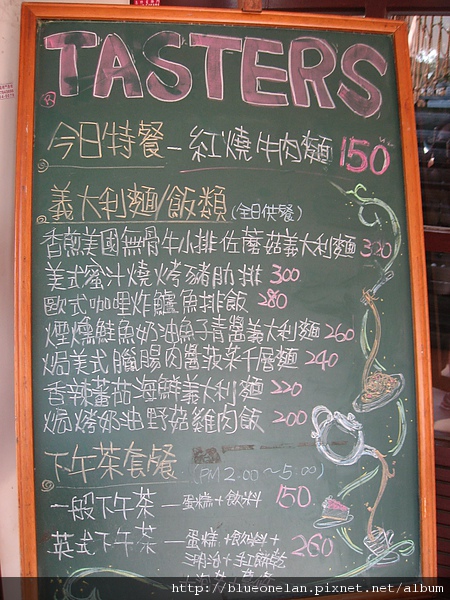 TASTERS
今日特餐 — 紅燒牛肉麵 150
義大利麵/飯類 (全日供餐)
香煎美國無骨牛小排佐蘑菇義大利麵 320
美式蜜汁燒烤豬肋排 300
歐式咖哩炸鱸魚排飯 280
煙燻鮭魚奶油魚子青醬義大利麵 260
焗美式臘腸肉醬菠菜千層麵 240
香辣蕃茄海鮮義大利麵 220
焗烤奶油野菇雞肉飯 200
下午茶套餐 (PM 2:00～5:00)
一般下午茶 — 蛋糕+飲料 150
英式下午茶 — 蛋糕+飲料+ 260
三明治+手工餅乾
http://blueonelan.pixnet.net/album